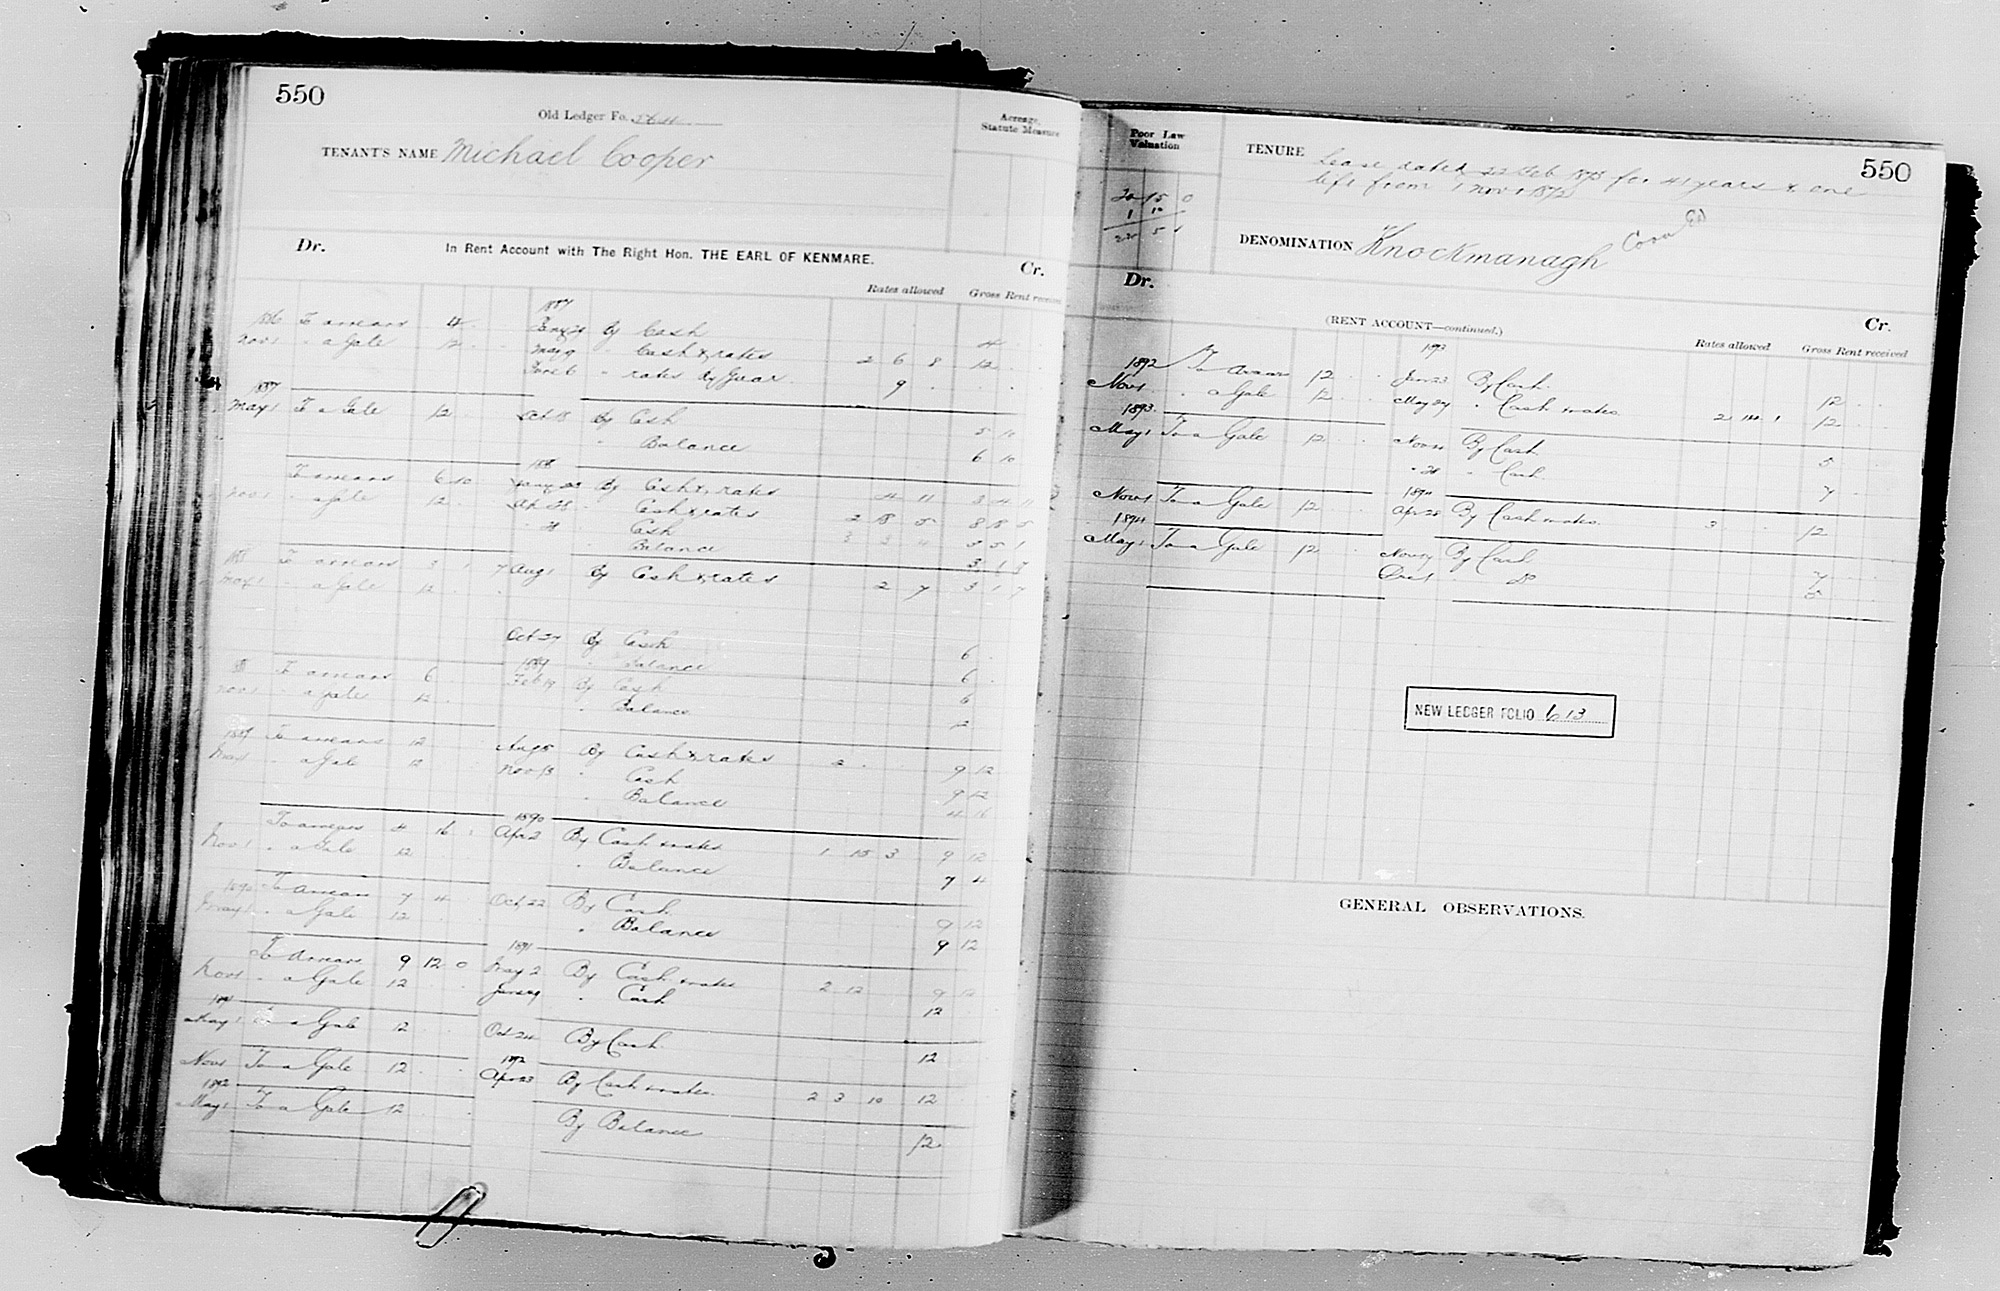 550
Old Ledger Fo.
TENANT'S NAME Michael Cooper
Acreage, Statute Measure
Dr. In Rent Account with The Right Hon. THE EARL OF KENMARE. Cr.
Rates allowed Gross Rent received
1887
1886 To arrears 4 Jany 29 By Cash 4
Nov 1 " a Gale 12 May 9 " Cash & rates 2 6 8 12
June 6 " rates By Guar. 9
1887
May 1 To a Gale 12 Oct 13 By Cash 5 10
" Balance 6 10
1888
To arrears 6 10 Jany 23 By Cash & rates 4 11 3 4 11
Nov 1 " a Gale 12 Ap 28 " Cash & rates 2 8 5 8 8 5
" Cash 5 5 1
" Balance
1888 To arrears 3 1 7 Aug 1 By Cash & rates 2 7 3 1 7
May 1 " a Gale 12
Oct 27 By Cash 6
1889 " Balance 6
To arrears 6 Feb 19 By Cash 6
Nov 1 " a gale 12 " Balance
1889 To arrears 12 Aug 5 By Cash & rates 2 9 12
May 1 " a Gale 12 Nov 13 " Cash 9 12
" Balance 4 16
1890
To arrears 4 16 Apr 2 By Cash & rates 1 15 3 9 12
Nov 1 " a Gale 12 " Balance 7 4
1890 To arrears 7 4 Oct 22 By Cash 9 12
May 1 " a Gale 12 " Balance 9 12
1891
To arrears 9 12 0 May 2 By Cash & rates 2 12 9 12
Nov 1 " a Gale 12 June 29 " Cash 12
1891
May 1 To a Gale 12 Oct 24 By Cash 12
1892
Nov 1 To a Gale 12 Apr 23 By Cash & rates 2 3 10 12
1892
May 1 To a Gale 12 By Balance 12
Poor Law Valuation
20 15 0
1 10
22 5
TENURE Lease dated 22 Feb 1875 for 41 years & one
life from 1 Nov 1872
550
DENOMINATION Knockmanagh
Dr. (RENT ACCOUNT—continued.) Cr.
Rates allowed Gross Rent received
1893
1892 To arrears 12 Jan 23 By Cash 12
Nov 1 " a Gale 12 May 29 " Cash & rates 2 14 1 12
1893
May 1 To a Gale 12 Nov By Cash 5
" 28 " Cash 7
1894
Nov 1 To a Gale 12 Apr 28 By Cash & rates 3 12
1894
May 1 To a Gale 12 Nov By Cash 7
Dec 1 Do 5
NEW LEDGER FOLIO 613
GENERAL OBSERVATIONS.